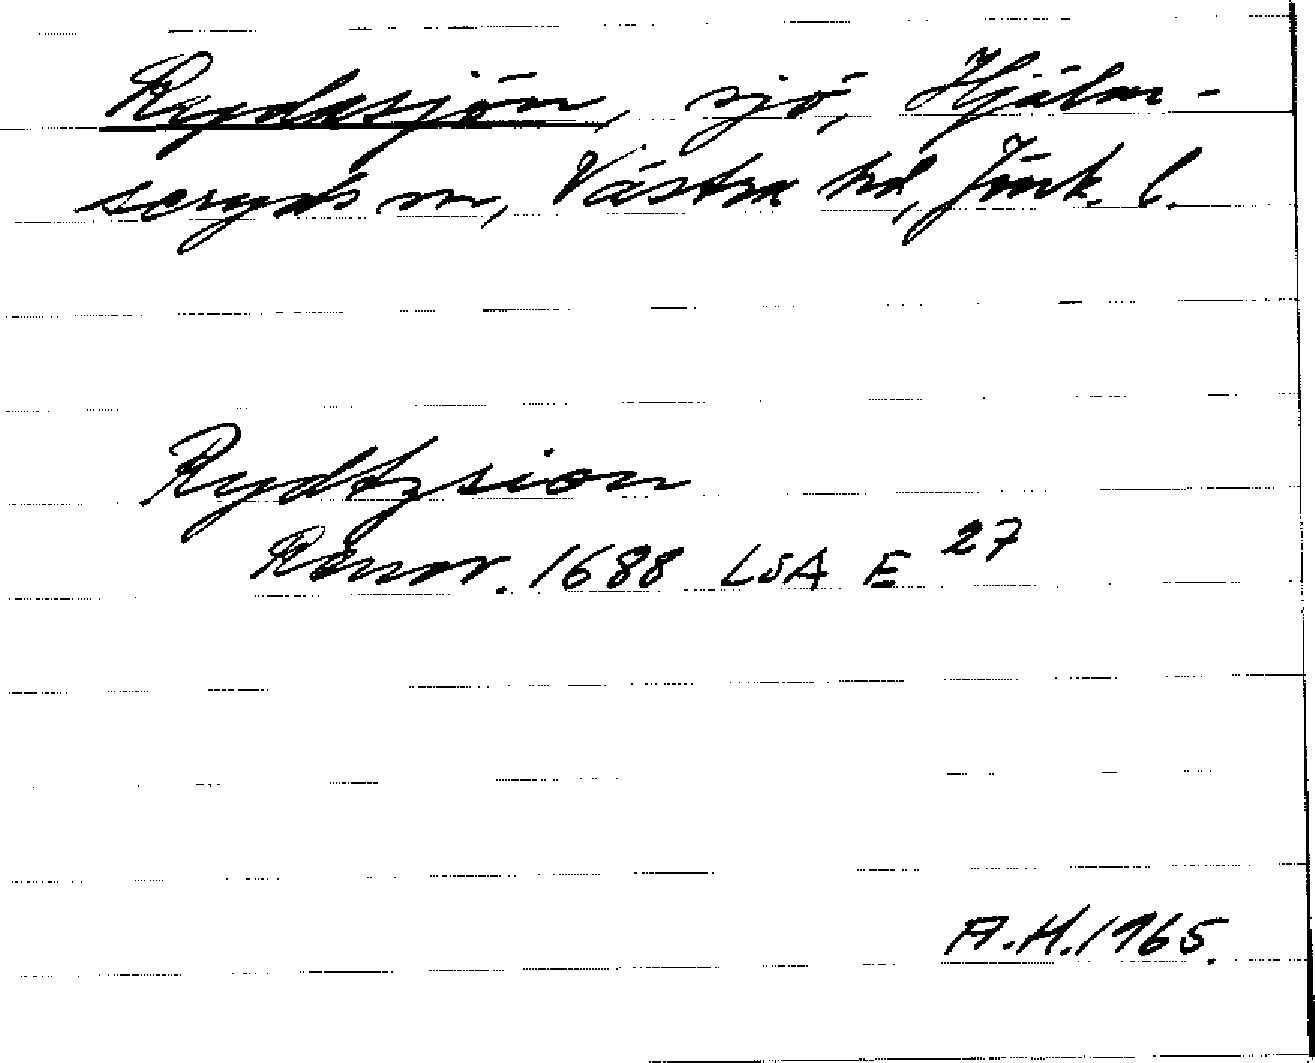 Rydasjön, sjö, Hjälm-
seryds sn, Västra hd, Jönk. l.
Rydtzsion
Rannr. 1688 LSA E 27
A.H. 1965.